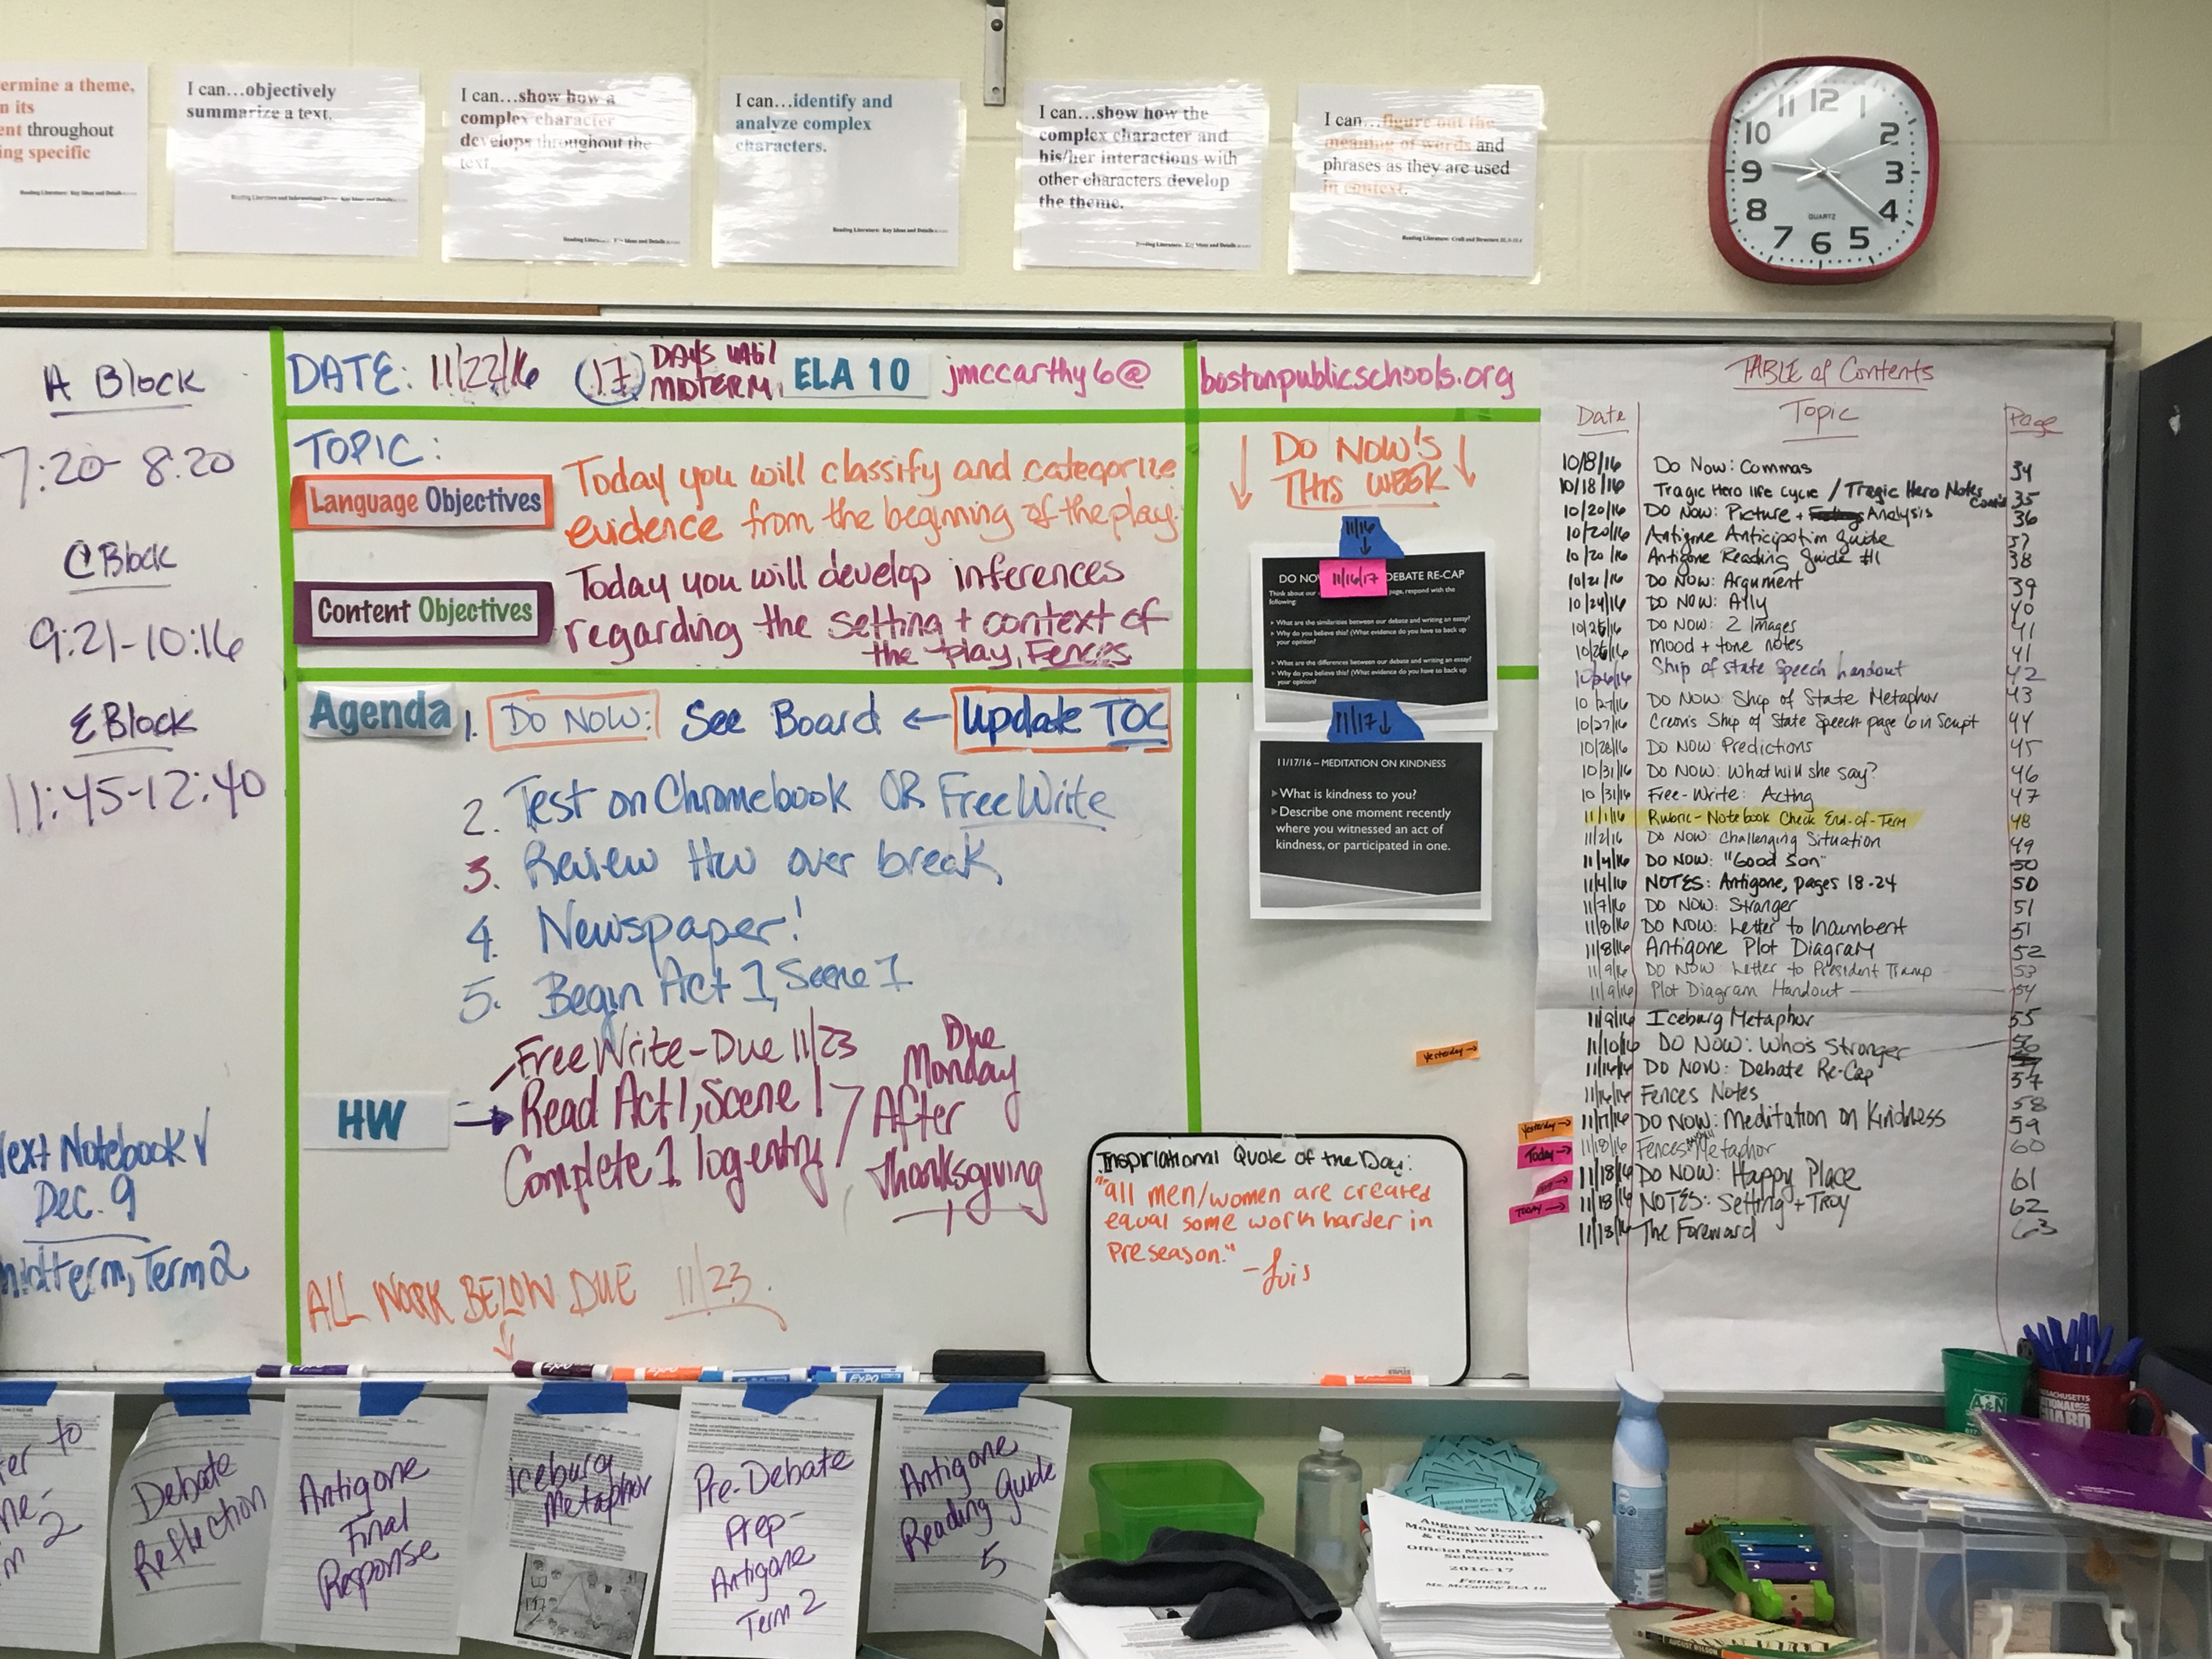 ermine a theme,
n its
ent throughout
ing specific
I can…objectively
summarize a text.
I can…show how a
complex character
develops throughout the
text.
I can…identify and
analyze complex
characters.
Reading Literature: Key Ideas and Details
I can…show how the
complex character and
his/her interactions with
other characters develop
the theme.
I can…figure out the
meaning of words and
phrases as they are used
in context.
Reading Literature: Craft and Structure
11 12 1
10 2
9 3
8 4
7 6 5
QUARTZ
A Block
7:20-8:20
C Block
9:21-10:16
E Block
11:45-12:40
Next Notebook ✓
Dec. 9
midterm, Term 2
DATE: 11/22/16 17 DAYS UNTIL
MIDTERM, ELA 10 jmccarthy6@
bostonpublicschools.org
TOPIC:
Language Objectives
Today you will classify and categorize
evidence from the beginning of the play.
Content Objectives
Today you will develop inferences
regarding the setting + context of
the play, Fences
Agenda 1. DO NOW: See Board ← Update TOC
2. Test on Chromebook OR Free Write
3. Review HW over break
4. Newspaper!
5. Begin Act 1, Scene 1
HW
Free Write - Due 11/23
→ Read Act 1, Scene 1
Complete 1 log entry
Due
Monday
After
Thanksgiving
ALL WORK BELOW DUE 11/23
↓ DO NOW'S ↓
THIS WEEK
11/16
↓
11/16/17
DO NO DEBATE RE-CAP
Think about our page, respond with the
following:
What are the similarities between our debate and writing an essay?
Why do you believe this? (What evidence do you have to back up
your opinion?
What are the differences between our debate and writing an essay?
Why do you believe this? (What evidence do you have to back up
your opinion?
11/17 ↓
11/17/16 – MEDITATION ON KINDNESS
What is kindness to you?
Describe one moment recently
where you witnessed an act of
kindness, or participated in one.
Yesterday →
Inspirational Quote of the Day:
"all men/women are created
equal some work harder in
preseason."
- Luis
TABLE of Contents
Date Topic Page
10/8/16 Do Now: Commas 34
10/18/16 Tragic Hero life cycle / Tragic Hero Notes Cont'd 35
10/20/16 Do Now: Picture + Analysis 36
10/20/16 Antigone Anticipation Guide 37
10/20/16 Antigone Reading Guide #1 38
10/21/16 Do Now: Argument 39
10/24/16 DO NOW: Ally 40
10/25/16 DO NOW: 2 Images 41
10/25/16 mood + tone notes 41
10/26/16 Ship of State Speech handout 42
10/27/16 Do Now: Ship of State Metaphor 43
10/27/16 Creon's Ship of State Speech page 6 in Script 44
10/28/16 Do NOW: Predictions 45
10/31/16 Do NOW: What will she say? 46
10/31/16 Free-Write: Acting 47
11/1/16 Rubric - Notebook Check End-of-Term 48
11/2/16 Do NOW: Challenging Situation 49
11/4/16 DO NOW: "Good Son" 50
11/4/16 NOTES: Antigone, pages 18-24 50
11/7/16 Do NOW: Stranger 51
11/8/16 DO NOW: Letter to Incumbent 51
11/8/16 Antigone Plot Diagram 52
11/9/16 DO NOW Letter to President Trump 53
11/9/16 Plot Diagram Handout 54
11/9/16 Iceburg Metaphor 55
11/10/16 Do Now: Who's Stronger 56
11/16/16 DO NOW: Debate Re-Cap 57
11/16/16 Fences Notes 58
Yesterday → 11/17/16 DO NOW: Meditation on Kindness 59
Today → 11/18/16 Fences Metaphor 60
11/18/16 DO NOW: Happy Place 61
TODAY → 11/18/16 NOTES: Setting + TROY 62
11/18/16 The Foreward 63
EXPO
Debate
Reflection
Antigone
Final
Response
Iceburg
Metaphor
Pre-Debate
Prep-
Antigone
Term 2
Antigone
Reading Guide
5
August Wilson
Monologue Project
& Competition
Official Monologue
Selection
2016-17
Fences
Ms. McCarthy ELA 10
AUGUST WILSON